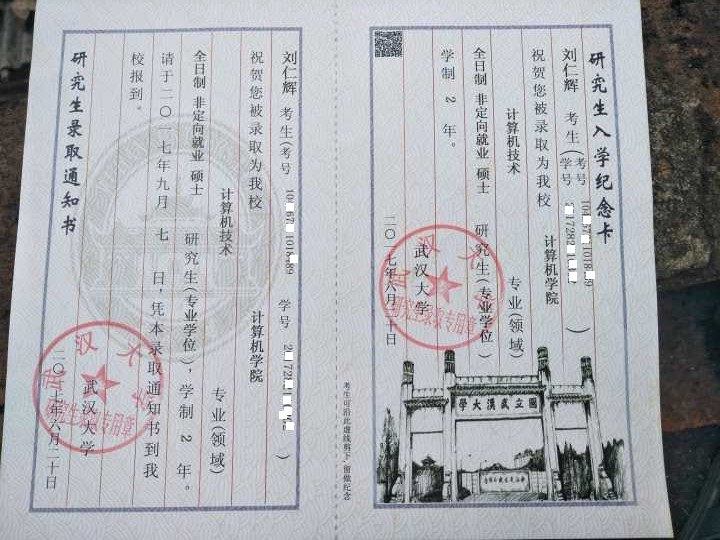 研究生入学纪念卡
刘仁辉 考生(考号 学号 )
祝贺您被录取为我校 计算机学院
计算机技术 专业(领域)
全日制 非定向就业 硕士 研究生(专业学位)
学制 2 年。
武汉大学
二〇一七年六月二十日
武汉大学
研究生录取专用章
國立武漢大學
考生可沿此虚线剪下,留做纪念
刘仁辉 考生(考号 学号 )
祝贺您被录取为我校 计算机学院
计算机技术 专业(领域)
全日制 非定向就业 硕士 研究生(专业学位),学制 2 年。
请于二〇一七年九月 七 日,凭本录取通知书到我
校报到。
研究生录取通知书
武汉大学
二〇一七年六月二十日
武汉大学
研究生录取专用章